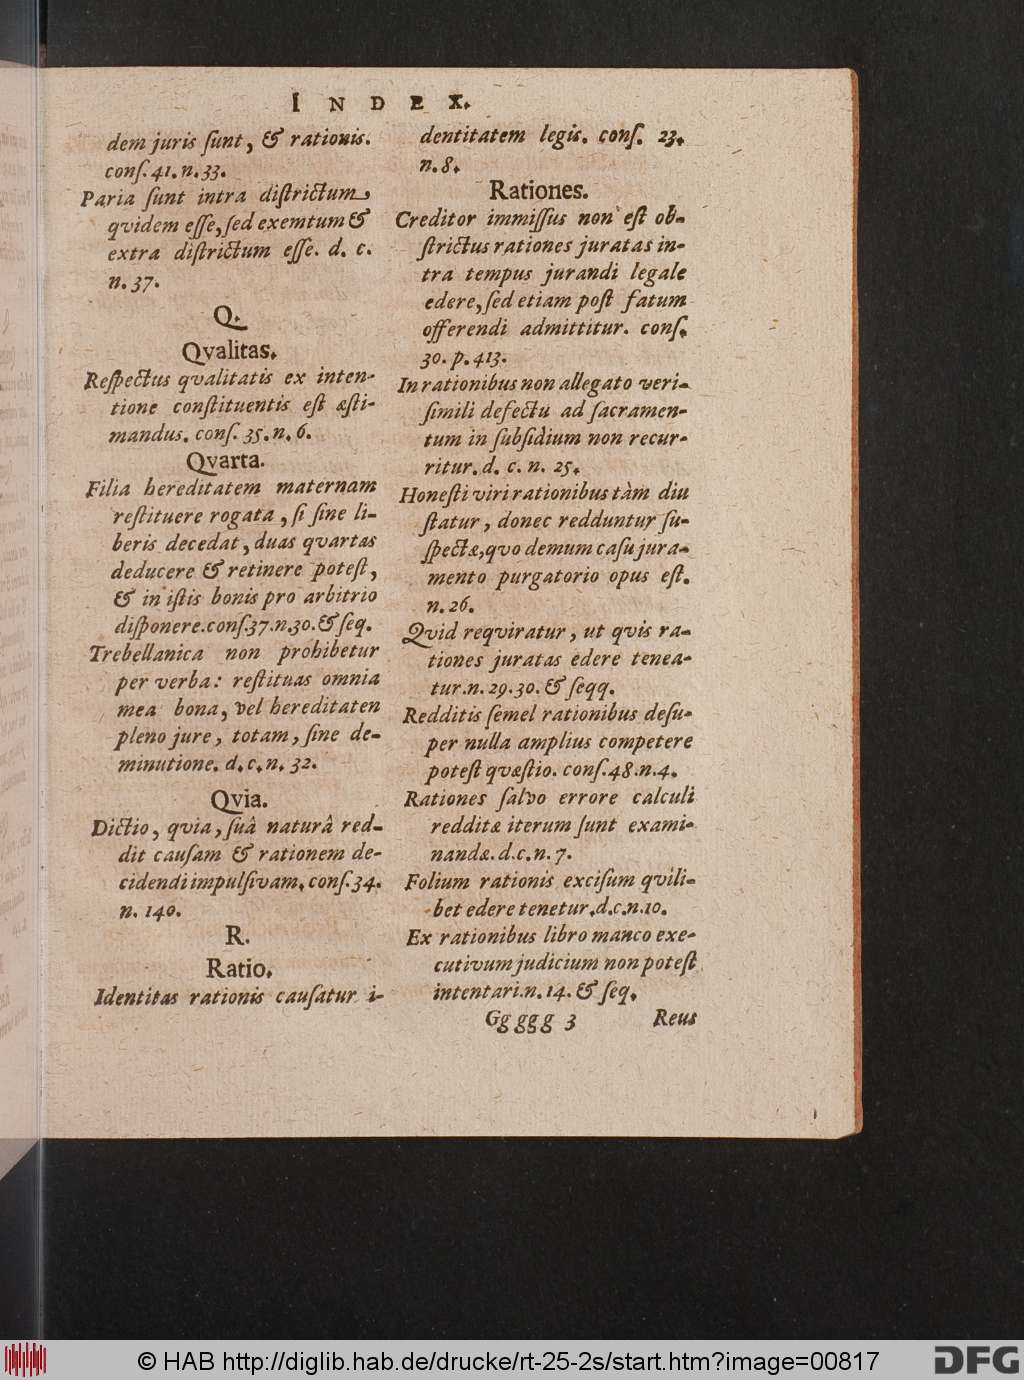 INDEX.
dem juris ſunt, & rationis.
conſ. 41. n. 33.
Paria ſunt intra diſtrictum
qvidem eſſe, ſed exemtum &
extra diſtrictum eſſe. d. c.
n. 37.
Q.
Qvalitas.
Reſpectus qvalitatis ex inten-
tione conſtituentis eſt æſti-
mandus. conſ. 35. n. 6.
Qvarta.
Filia hereditatem maternam
reſtituere rogata, ſi ſine li-
beris decedat, duas qvartas
deducere & retinere poteſt,
& in iſtis bonis pro arbitrio
diſponere. conſ. 37. n. 30. & ſeq.
Trebellanica non prohibetur
per verba: reſtituas omnia
mea bona, vel hereditaten
pleno jure, totam, ſine de-
minutione. d. c. n. 32.
Qvia.
Dictio, qvia, ſuâ naturâ red-
dit cauſam & rationem de-
cidendi impulſivam. conſ. 34.
n. 140.
R.
Ratio.
Identitas rationis cauſatur i-
dentitatem legis. conſ. 23.
n. 8.
Rationes.
Creditor immiſſus non eſt ob-
ſtrictus rationes juratas in-
tra tempus jurandi legale
edere, ſed etiam poſt fatum
offerendi admittitur. conſ.
30. p. 413.
In rationibus non allegato veri-
ſimili defectu ad ſacramen-
tum in ſubſidium non recur-
ritur. d. c. n. 25.
Honeſti viri rationibus tàm diu
ſtatur, donec redduntur ſu-
ſpectæ, qvo demum caſu jura-
mento purgatorio opus eſt.
n. 26.
Qvid reqviratur, ut qvis ra-
tiones juratas edere tenea-
tur. n. 29. 30. & ſeqq.
Redditis ſemel rationibus deſu-
per nulla amplius competere
poteſt qvæſtio. conſ. 48. n. 4.
Rationes ſalvo errore calculi
redditæ iterum ſunt exami-
nandæ. d. c. n. 7.
Folium rationis exciſum qvili-
bet edere tenetur. d. c. n. 10.
Ex rationibus libro manco exe-
cutivum judicium non poteſt
intentari. n. 14. & ſeq.
Gg gg g 3 Reus
© HAB http://diglib.hab.de/drucke/rt-25-2s/start.htm?image=00817
DFG